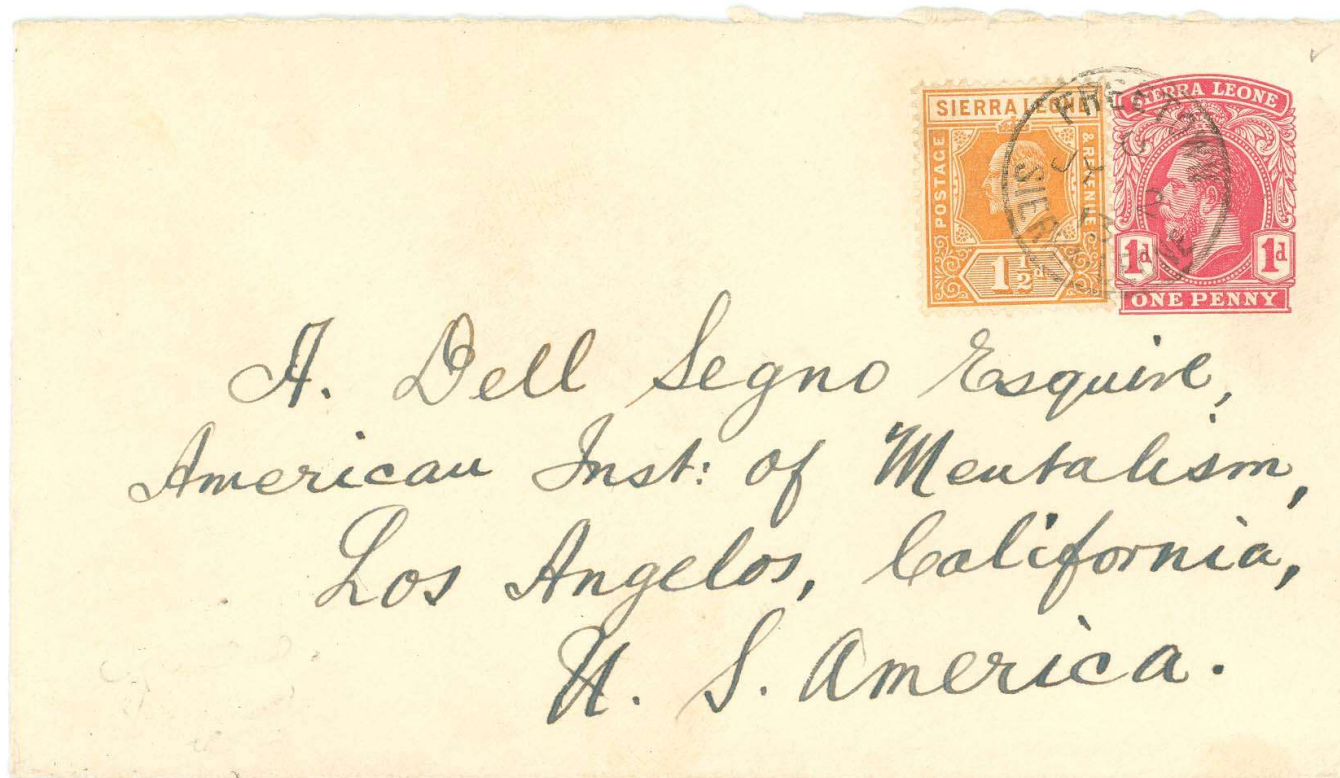 SIERRA LEONE
POSTAGE & REVENUE
1½d
SIERRA LEONE
1d 1d
ONE PENNY
FREETOWN
SIERRA LEONE
A. Dell Segno Esquire,
American Inst: of Mentalism,
Los Angelos, California,
U. S. America.